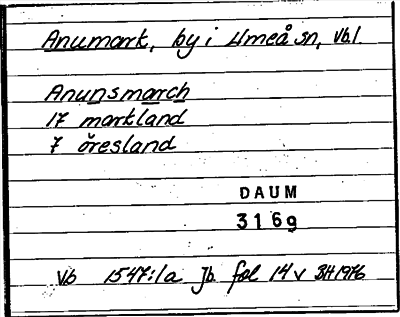 Anumark, by i Umeå sn, Vb.l.
Anunsmarch
17 markland
7 öresland
DAUM
3169
Vb 1547:1a Jb fol 14 v BH 1976